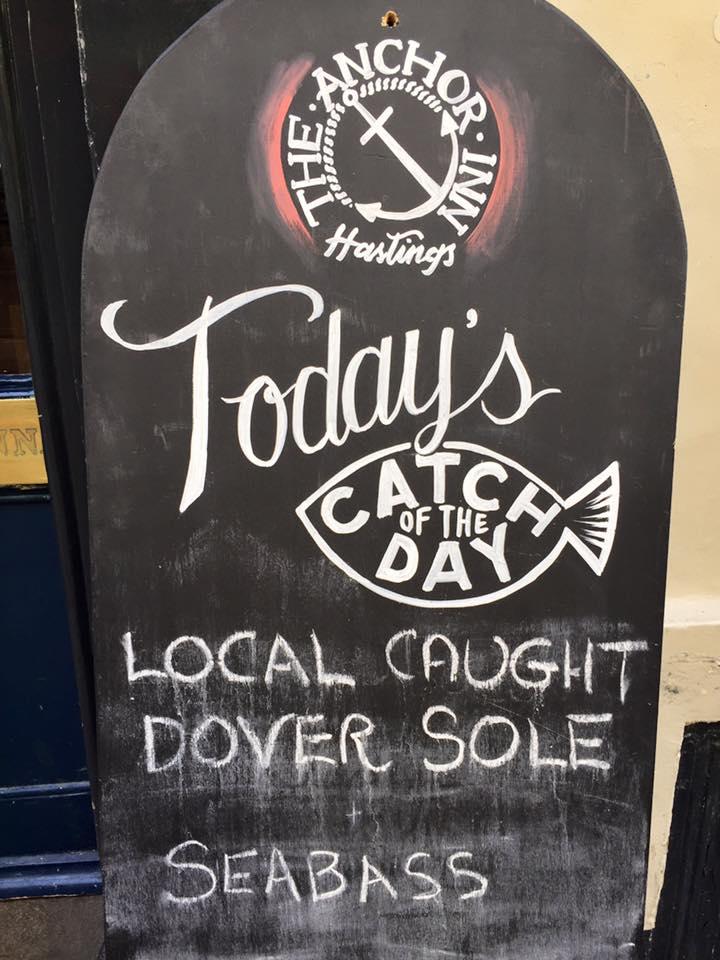 THE · ANCHOR · INN
Hastings
Today's
CATCH
OF THE
DAY
LOCAL CAUGHT
DOVER SOLE
+
SEABASS